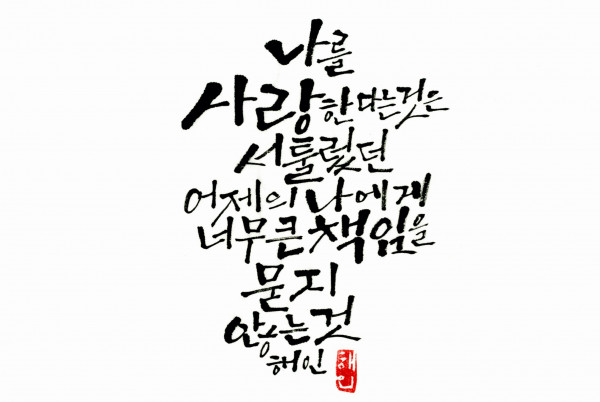 나를
사랑한다는것은
서툴렀던
어제의 나에게
너무큰 책임을
묻지
않는것
해인
해인